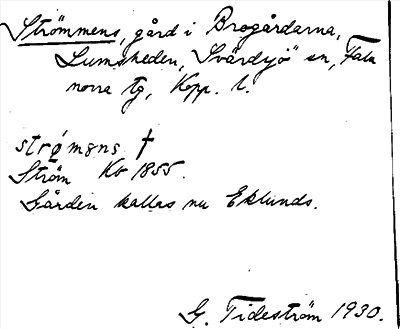 Strömmens, gård i Brogårdarna,
Lumsheden, Svärdsjö sn, Falu
norra tg, Kopp. l.
strømøns †
Ström Kb 1855.
Gården kallas nu Eklunds.
G. Tideström 1930.